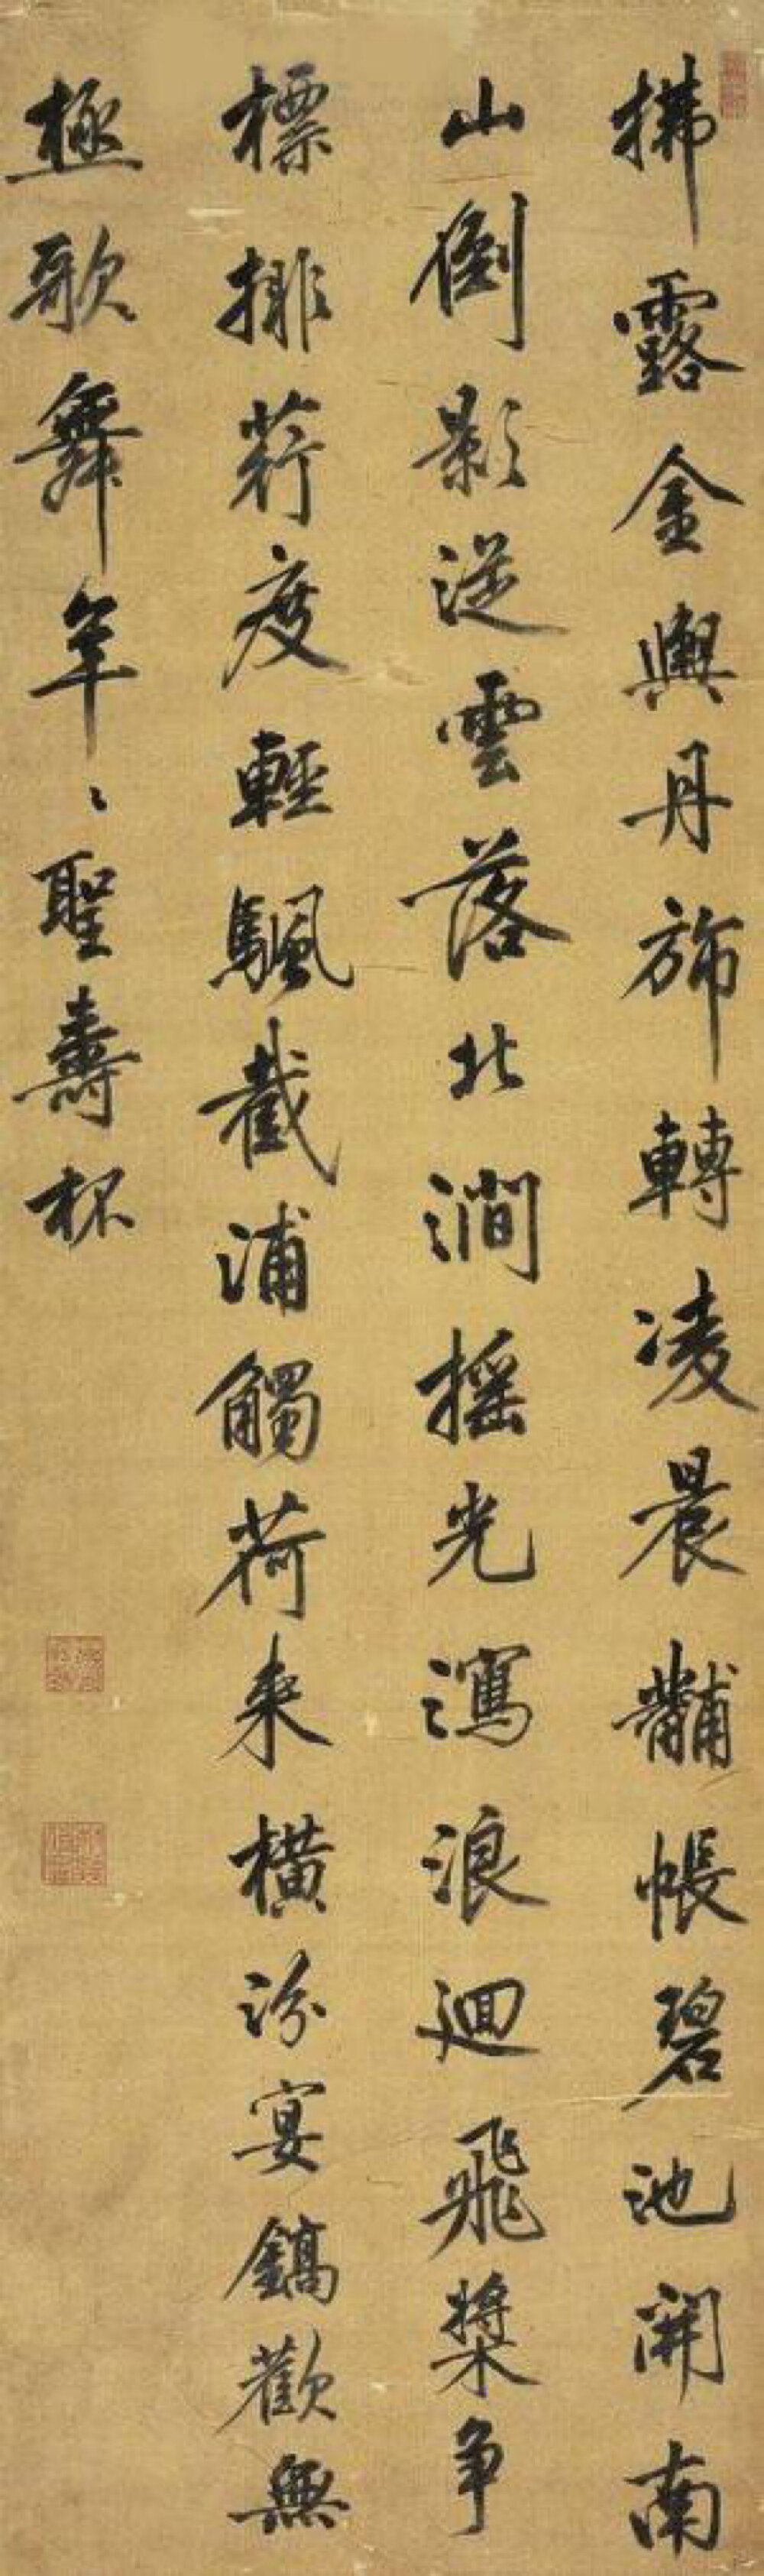 拂露金輿丹旆轉凌晨黼帳碧池開南
山倒影從雲落北澗摇光瀉浪迴飛槳争
標排荇度輕颿截浦觸荷来横汾宴鎬歡無
極歌舞年〻聖壽杯